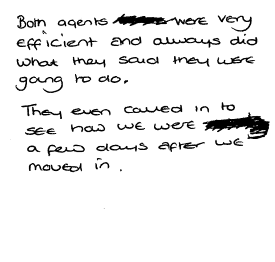 Both agents were very
efficient and always did
what they said they were
going to do.
They even called in to
see how we were
a few days after we
moved in.